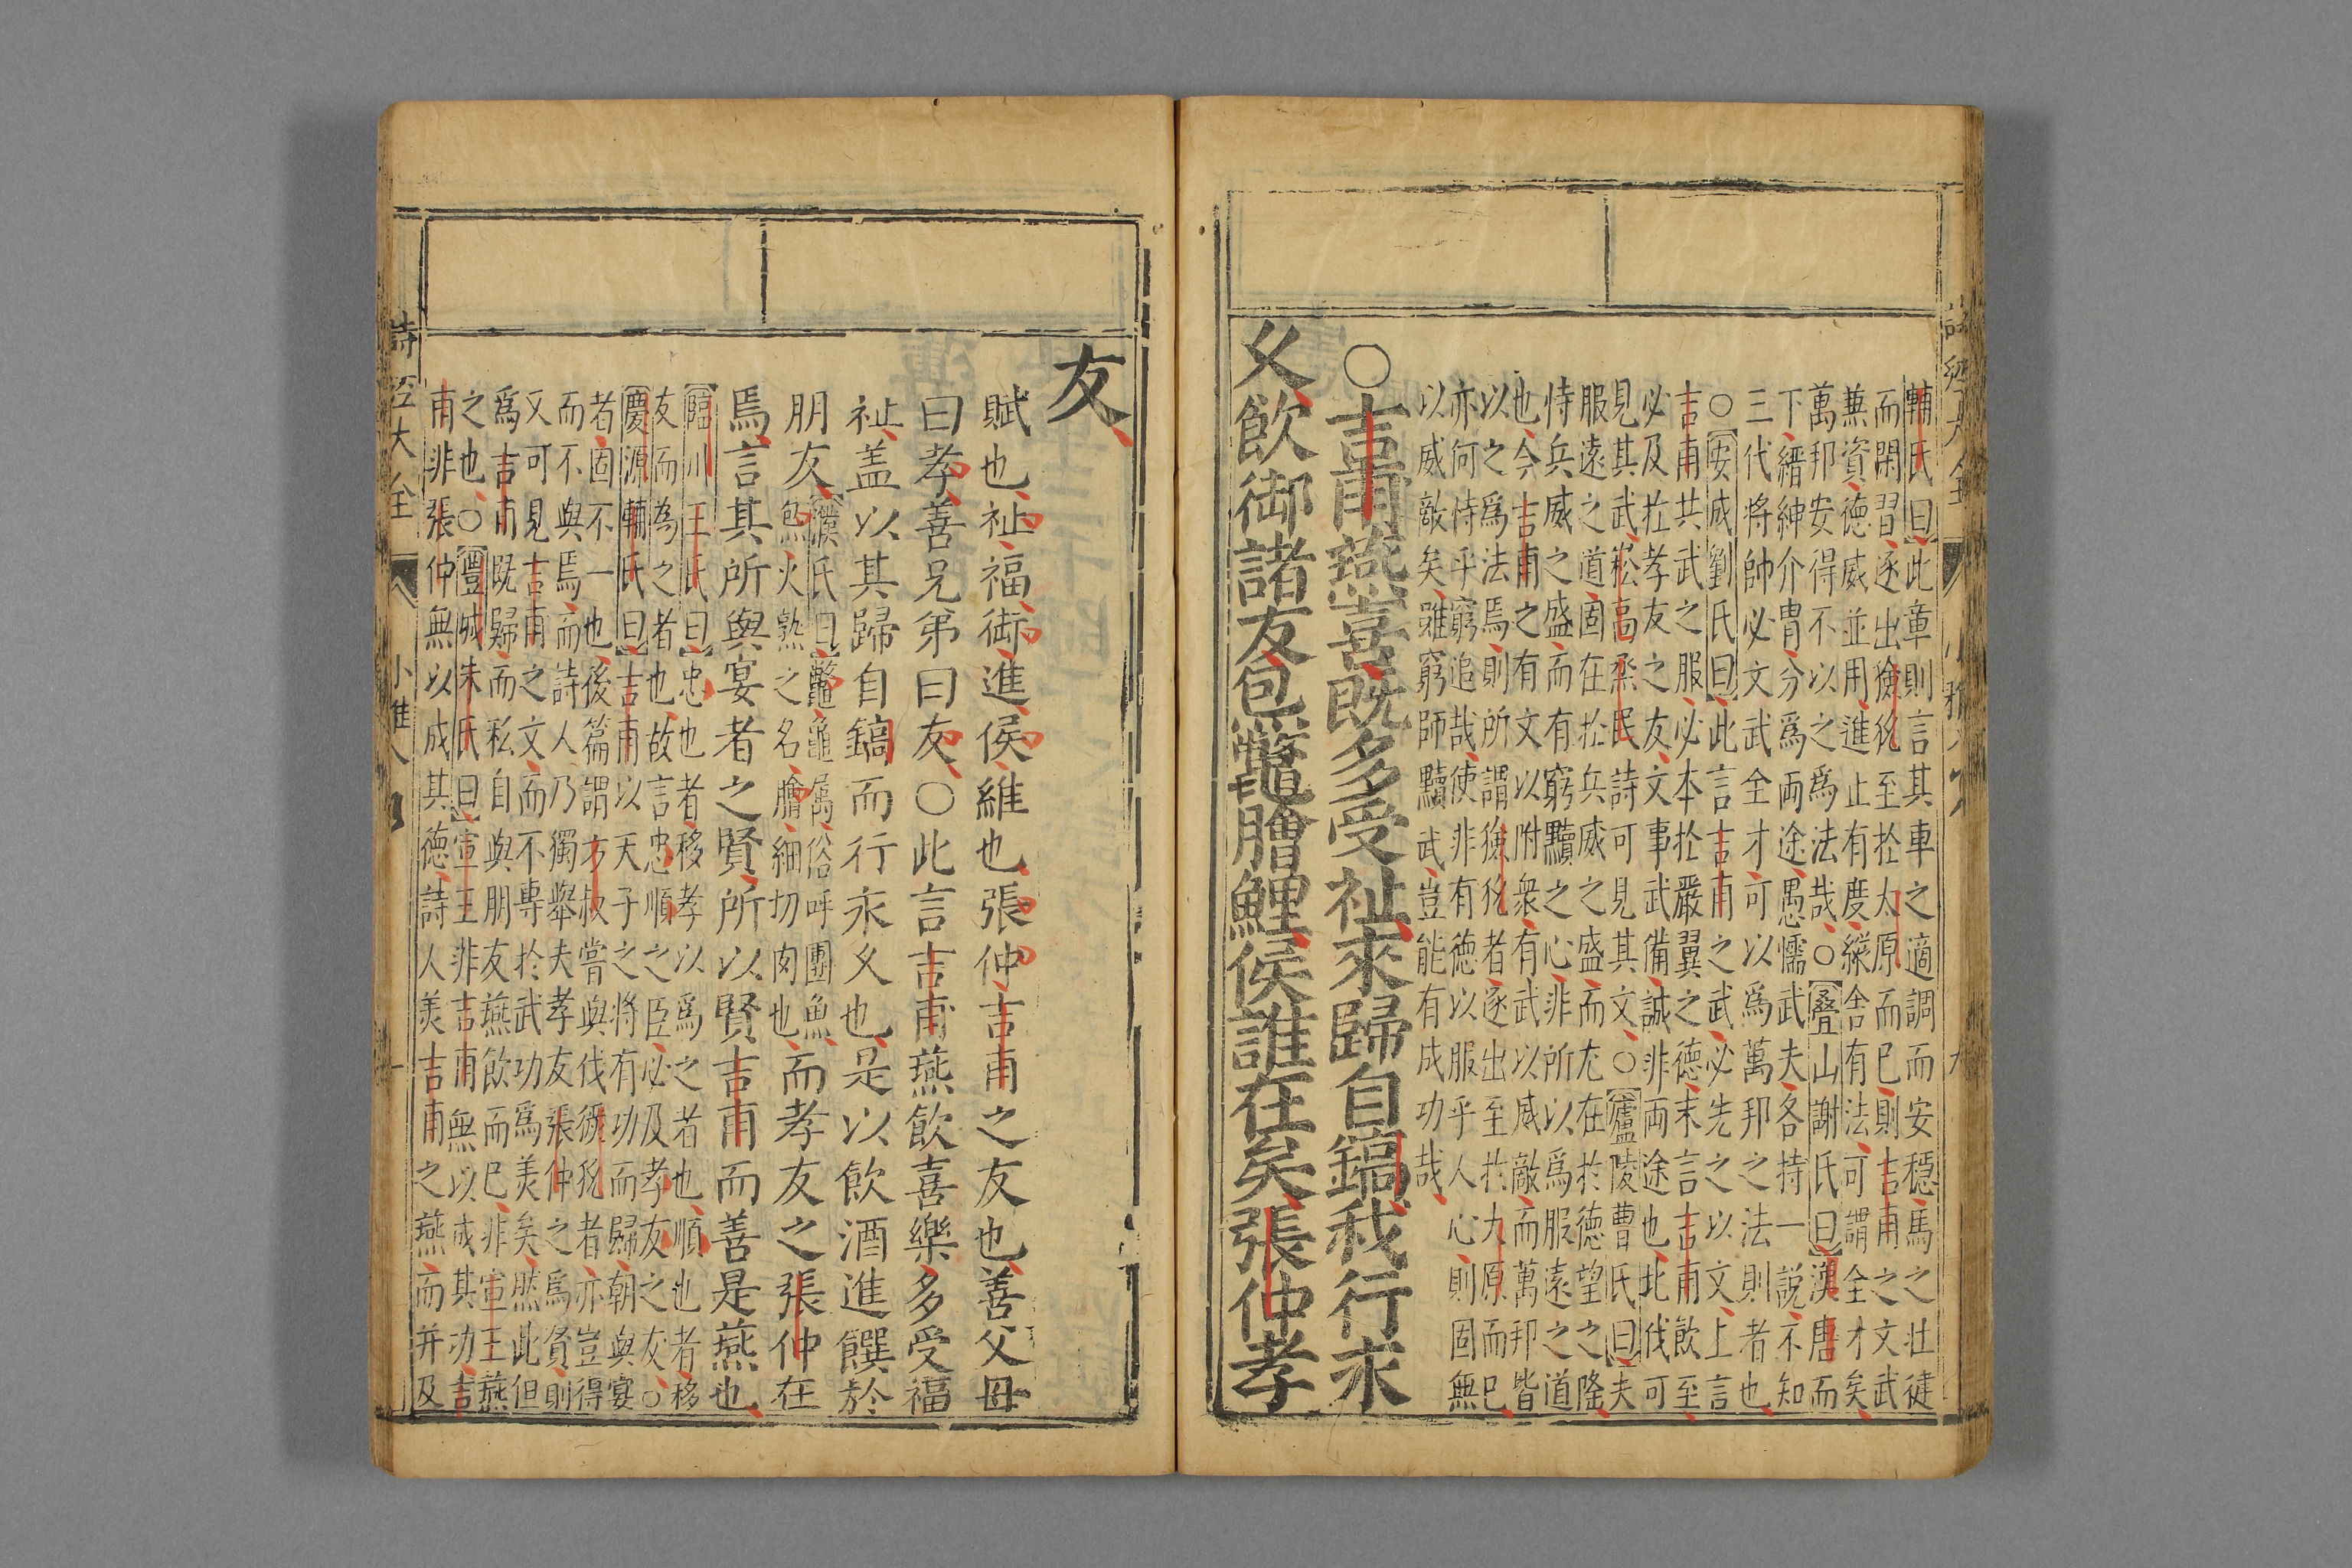 輔氏曰此章則言其車之適調而安穩馬之壯徤
而閑習逐出玁狁至於太原而已則吉甫之文武
蕪資德威並用進止有度縱舍有法可謂全才矣
萬邦安得不以之為法哉○疊山謝氏曰漢唐而
下縉紳介冑分爲両途愚懦武夫各持一説不知
三代將帥必文武全才可以爲萬邦之法則者也
○安成劉氏曰此言吉甫之武必先之以文上言
吉甫共武之服必本於嚴翼之德末言吉甫飲至
必及於孝友之友文事武備誠非両途也北伐可
見其武崧高烝民詩可見其文○廬陵曹氏曰夫
服遠之道固在於兵威之盛而尤在於德望之隆
恃兵威之盛而有窮黷之心非所以爲服遠之道
也今吉甫之有文以附衆有武以威敵而萬邦皆
以之爲法焉則所謂玁狁者逐出至於大原而已
亦何恃乎窮追哉使非有德以服乎人心則固無
以威敵矣雖窮師黷武豈能有成功哉
○吉甫燕喜既多受祉來歸自鎬我行永
乆飲御諸友炰鼈膾鯉侯誰在矣張仲孝
友
賦也祉福御進侯維也張仲吉甫之友也善父母
曰孝善兄弟曰友○此言吉甫燕飲喜樂多受福
祉盖以其歸自鎬而行永乆也是以飲酒進饌於
朋友濮氏曰鼈龜属俗呼團魚炰火熟之名膾細切肉也而孝友之張仲在
焉言其所與宴者之賢所以賢吉甫而善是燕也
臨川王氏曰忠也者移孝以爲之者也順也者移
友而為之者也故言忠順之臣必及孝友之友○
慶源輔氏曰吉甫以天子之將有功而歸朝與宴
者固不一也後篇謂方叔嘗與伐玁狁者亦豈得
而不與焉而詩人乃獨舉夫孝友張仲之爲賓則
又可見吉甫之文而不專於武功爲美矣然此但
爲吉甫既歸而私自與朋友燕飲而已非宣王燕
之也○豐城朱氏曰宣王非吉甫無以成其功吉
甫非張仲無以成其德詩人美吉甫之燕而并及